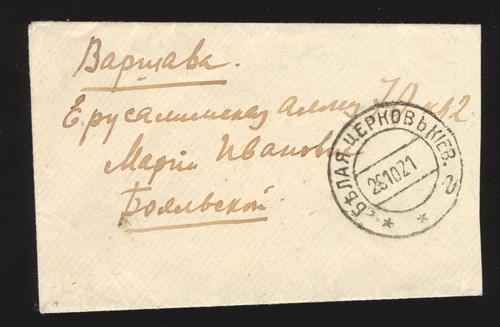 Варшава.
Ерусалимская аллея 70 кв 2
Марии Ивановне
БѢЛАЯ ЦЕРКОВЬ КІЕВ. 2
261021